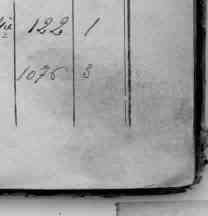 122 1
1076 3